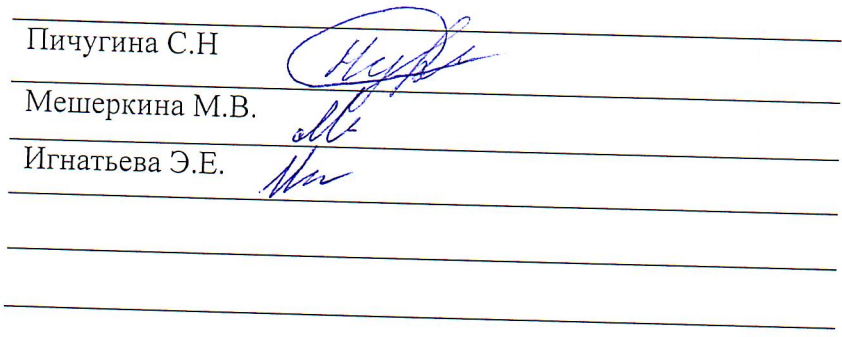 Пичугина С.Н
Мешеркина М.В.
Игнатьева Э.Е.